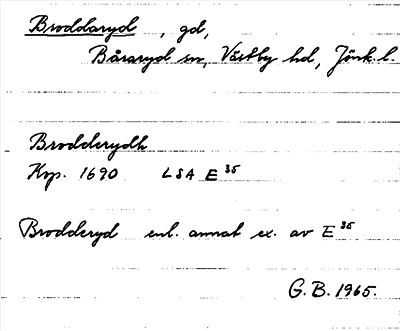 Broddaryd, gd,
Båraryd sn, Västbo hd, Jönk. l.
Brodderydh
Kop. 1690 LSA E 35
Brodderyd enl. annat ex. av E 35
G. B. 1965.